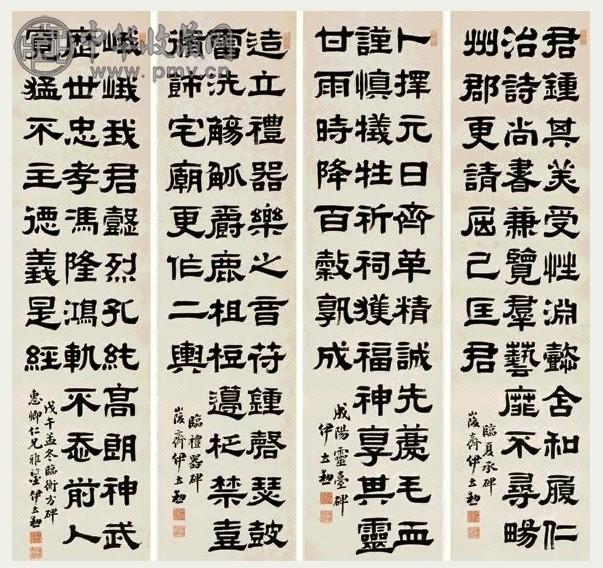 中华收藏网
www.pmv.cn
君鍾其美受性淵懿含和履仁
治詩尚書兼覽羣藝靡不尋暢
州郡更請屈己匡君
臨夏承碑
峻齋伊立勳
卜擇元日齊革精誠先薦毛血
謹慎犧牲祈祠獲福神享其靈
甘雨時降百穀孰成
成陽靈臺碑
伊立勳
造立禮器樂之音苻鍾磬瑟鼓
雷洗觴觚爵鹿柤梪籩柉禁壺
脩飾宅廟更作二輿
臨禮器碑
峻齋伊立勳
峨峨我君懿烈孔純高朗神武
歷世忠孝馮隆鴻軌不忝前人
寬猛不主德義是經
戊午孟冬臨衡方碑
惠卿仁兄雅鑒 伊立勳